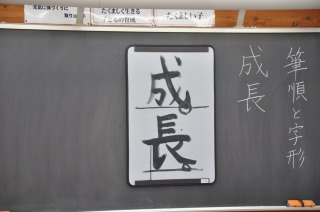 たくましく生きる
たくましい子
筆順と字形
成長
成長